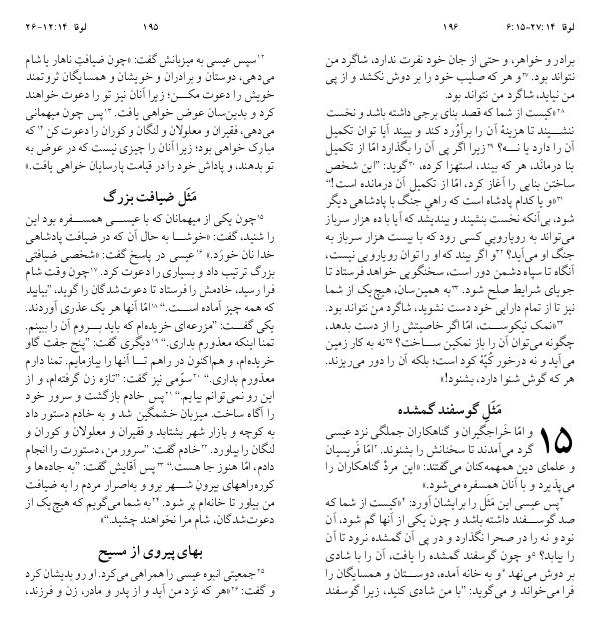 لوقا ۱۴:‏۱۲-‏۲۶
۱۹۵
۱۲سپس عیسی به میزبانش گفت: «چون ضیافتِ ناهار یا شام
می‌دهی، دوستان و برادران و خویشان و همسایگان ثروتمند
خویش را دعوت مکن؛ زیرا آنان نیز تو را دعوت خواهند
کرد و بدین‌سان عوض خواهی یافت. ۱۳پس چون میهمانی
می‌دهی، فقیران و معلولان و لنگان و کوران را دعوت کن ۱۴که
مبارک خواهی بود؛ زیرا آنان را چیزی نیست که در عوض به
تو بدهند، و پاداش خود را در قیامت پارسایان خواهی یافت.»
مَثَل ضیافت بزرگ
۱۵چون یکی از میهمانان که با عیسی همسفره بود این
را شنید، گفت: «خوشا به حال آن که در ضیافت پادشاهی
خدا نان خورَد.» ۱۶عیسی در پاسخ گفت: «شخصی ضیافتی
بزرگ ترتیب داد و بسیاری را دعوت کرد. ۱۷چون وقت شام
فرا رسید، خادمش را فرستاد تا دعوت‌شدگان را گوید، ”بیایید
که همه چیز آماده است.“ ۱۸امّا آنها هر یک عذری آوردند.
یکی گفت: ”مزرعه‌ای خریده‌ام که باید بروم آن را ببینم.
تمنا اینکه معذورم بداری.“ ۱۹دیگری گفت: ”پنج جفت گاو
خریده‌ام، و هم‌اکنون در راهم تا آنها را بیازمایم. تمنا دارم
معذورم بداری.“ ۲۰سوّمی نیز گفت: ”تازه زن گرفته‌ام، و از
این رو نمی‌توانم بیایم.“ ۲۱پس خادم بازگشت و سرور خود
را آگاه ساخت. میزبان خشمگین شد و به خادم دستور داد
به کوچه و بازار شهر بشتابد و فقیران و معلولان و کوران و
لنگان را بیاورد. ۲۲خادم گفت: ”سرور من، دستورت را انجام
دادم، امّا هنوز جا هست.“ ۲۳پس آقایش گفت: ”به جاده‌ها و
کوره‌راههای بیرون شهر برو و به‌اصرار مردم را به ضیافت
من بیاور تا خانه‌ام پر شود. ۲۴به شما می‌گویم که هیچ‌یک از
دعوت‌شدگان، شام مرا نخواهند چشید.“»
بهای پیروی از مسیح
۲۵جمعیتی انبوه عیسی را همراهی می‌کرد. او رو بدیشان کرد
و گفت: ۲۶«هر که نزد من آید و از پدر و مادر، زن و فرزند،
لوقا ۱۴:‏۲۷-‏۱۵:‏۶
۱۹۶
برادر و خواهر، و حتی از جان خود نفرت ندارد، شاگرد من
نتواند بود. ۲۷و هر که صلیب خود را بر دوش نکشد و از پی
من نیاید، شاگرد من نتواند بود.
۲۸«کیست از شما که قصد بنای برجی داشته باشد و نخست
ننشیند تا هزینهٔ آن را برآوُرد کند و ببیند آیا توان تکمیل
آن را دارد یا نه؟ ۲۹زیرا اگر پی آن را بگذارد امّا از تکمیل
بنا درمانَد، هر که بیند، استهزا کرده، ۳۰گوید: ”این شخص
ساختن بنایی را آغاز کرد، امّا از تکمیل آن درمانده است!“
۳۱«و یا کدام پادشاه است که راهی جنگ با پادشاهی دیگر
شود، بی‌آنکه نخست بنشیند و بیندیشد که آیا با ده هزار سرباز
می‌تواند به رویارویی کسی رود که با بیست هزار سرباز به
جنگ او می‌آید؟ ۳۲و اگر بیند که او را توان رویارویی نیست،
آنگاه تا سپاه دشمن دور است، سخنگویی خواهد فرستاد تا
جویای شرایط صلح شود. ۳۳به همین‌سان، هیچ‌یک از شما
نیز تا از تمام دارایی خود دست نشوید، شاگرد من نتواند بود.
۳۴«نمک نیکوست، امّا اگر خاصیتش را از دست بدهد،
چگونه می‌توان آن را باز نمکین ساخت؟ ۳۵نه به کار زمین
می‌آید و نه درخور کُپهٔ کود است؛ بلکه آن را دور می‌ریزند.
هر که گوش شنوا دارد، بشنود!»
مَثَلِ گوسفند گمشده
۱۵ و امّا خَراجگیران و گناهکاران جملگی نزد عیسی
گرد می‌آمدند تا سخنانش را بشنوند. ۲امّا فَریسیان
و علمای دین همهمه‌کنان می‌گفتند: «این مردْ گناهکاران را
می‌پذیرد و با آنان همسفره می‌شود.»
۳پس عیسی این مَثَل را برایشان آورد: ۴«کیست از شما که
صد گوسفند داشته باشد و چون یکی از آنها گم شود، آن
نود و نه را در صحرا نگذارد و در پی آن گمشده نرود تا آن
را بیابد؟ ۵و چون گوسفند گمشده را یافت، آن را با شادی
بر دوش می‌نهد ۶و به خانه آمده، دوستان و همسایگان را
فرا می‌خواند و می‌گوید: ”با من شادی کنید، زیرا گوسفند